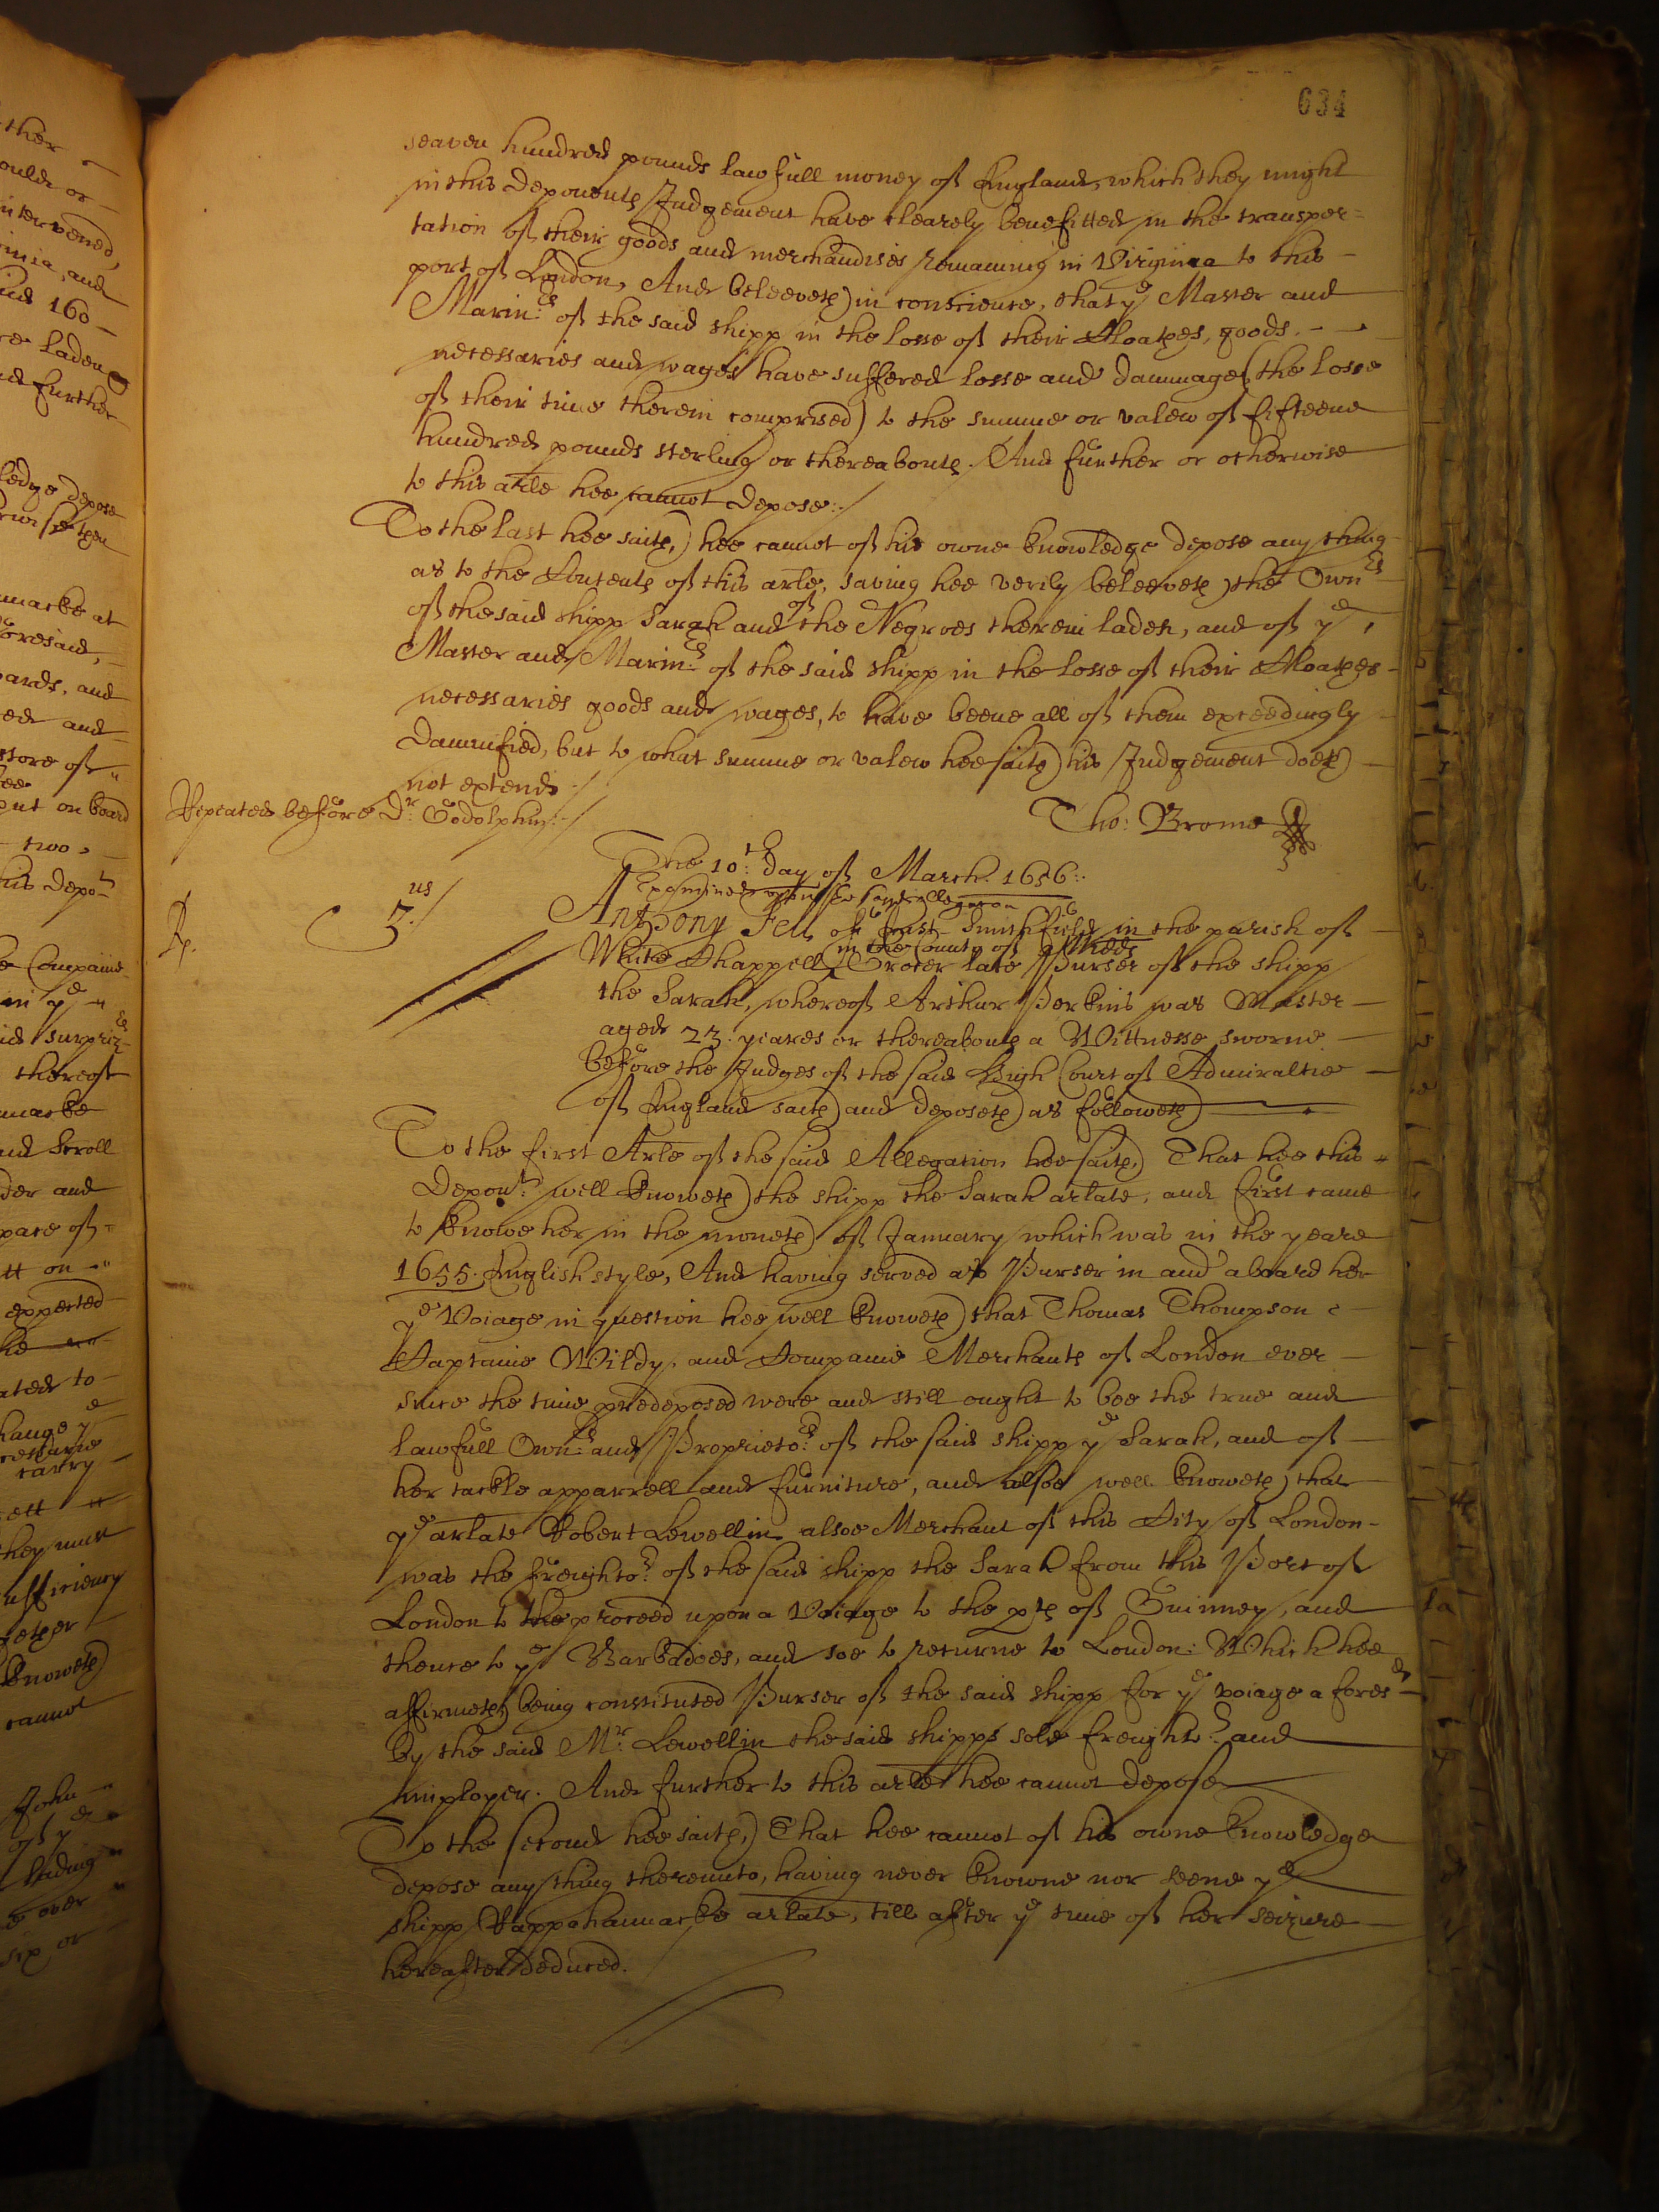 634
seaven hundred pounds lawfull money of England, which they might
in this deponents Judgement have clearely benefitted in the transpor=
tation of their goods and merchandises remaining in Virginia to this
port of London, And beleeveth in conscience, that ye Master and
Marinrs of the said shipp in the losse of their Cloathes, goods,
necessaries and wages have suffered losse and dammage (the losse
of their time therein comprised) to the summe or valew of fifteene
hundred pounds sterling or thereabouts. And further or otherwise
to this arle hee cannot depose:/
To the last hee saith, hee cannot of his owne knowledge depose any thing
as to the Contents of this arle, saving hee verily beleeveth the Ownrs
of the said shipp Sarah and of the Negroes therein laden, and of ye
Master and Marinrs of the said shipp in the losse of their Cloathes
necessaries goods and wages, to have beene all of them exceedingly
damnified, but to what summe or valew hee saith his Judgement doeth
not extend :/
Repeated before Dr: Godolphin:/
Tho: Brome
The 10th: day of March. 1656:.
Examined upon the said allegacon
Rp.
3.us/
Anthony Fell of East Smithfield in the parish of
White Chappell in the County of Middx Grocer late Purser of the shipp
the Sarah, whereof Arthur Perkins was Master
aged 23. yeares or thereabouts a Wittnesse sworne
before the Judges of the said High Court of Admiraltie
of England saith and deposeth as followeth
To the first Arle of the said Allegation hee saith, That hee this
Depont: well knoweth the shipp the Sarah arlate, and first came
to knowe her in the moneth of January which was in the yeare
1655. English style, And having served as Purser in and aboard her
ye Voiage in question hee well knoweth that Thomas Thompson
Captaine Wildy, and Companie Merchants of London ever
since the time predeposed were and still ought to bee the true and
lawfull Ownrs and Proprietors of the said shipp ye Sarah, and of
her tackle apparrell and furniture, and alsoe well knoweth that
ye arlate Robert Lewellin alsoe Merchant of this City of London
was the freightor of the said shipp the Sarah from this Port of
London to the proceed upon a Voiage to the pts of Guinney, and
thence to ye Barbadoes, and soe to returne to London: Which hee
affirmeth being constituted Purser of the said shipp for ye voiage aforesd
by the said Mr: Lewellin the said shipps sole freightr and
imployer. And further to this arle hee cannot depose
To the second hee saith, That hee cannot of his owne knowledge
depose any thing thereunto, having never knowne nor seene ye
shipp Rappahannacke arlate, till after ye time of her seizure
hereafter deduced.